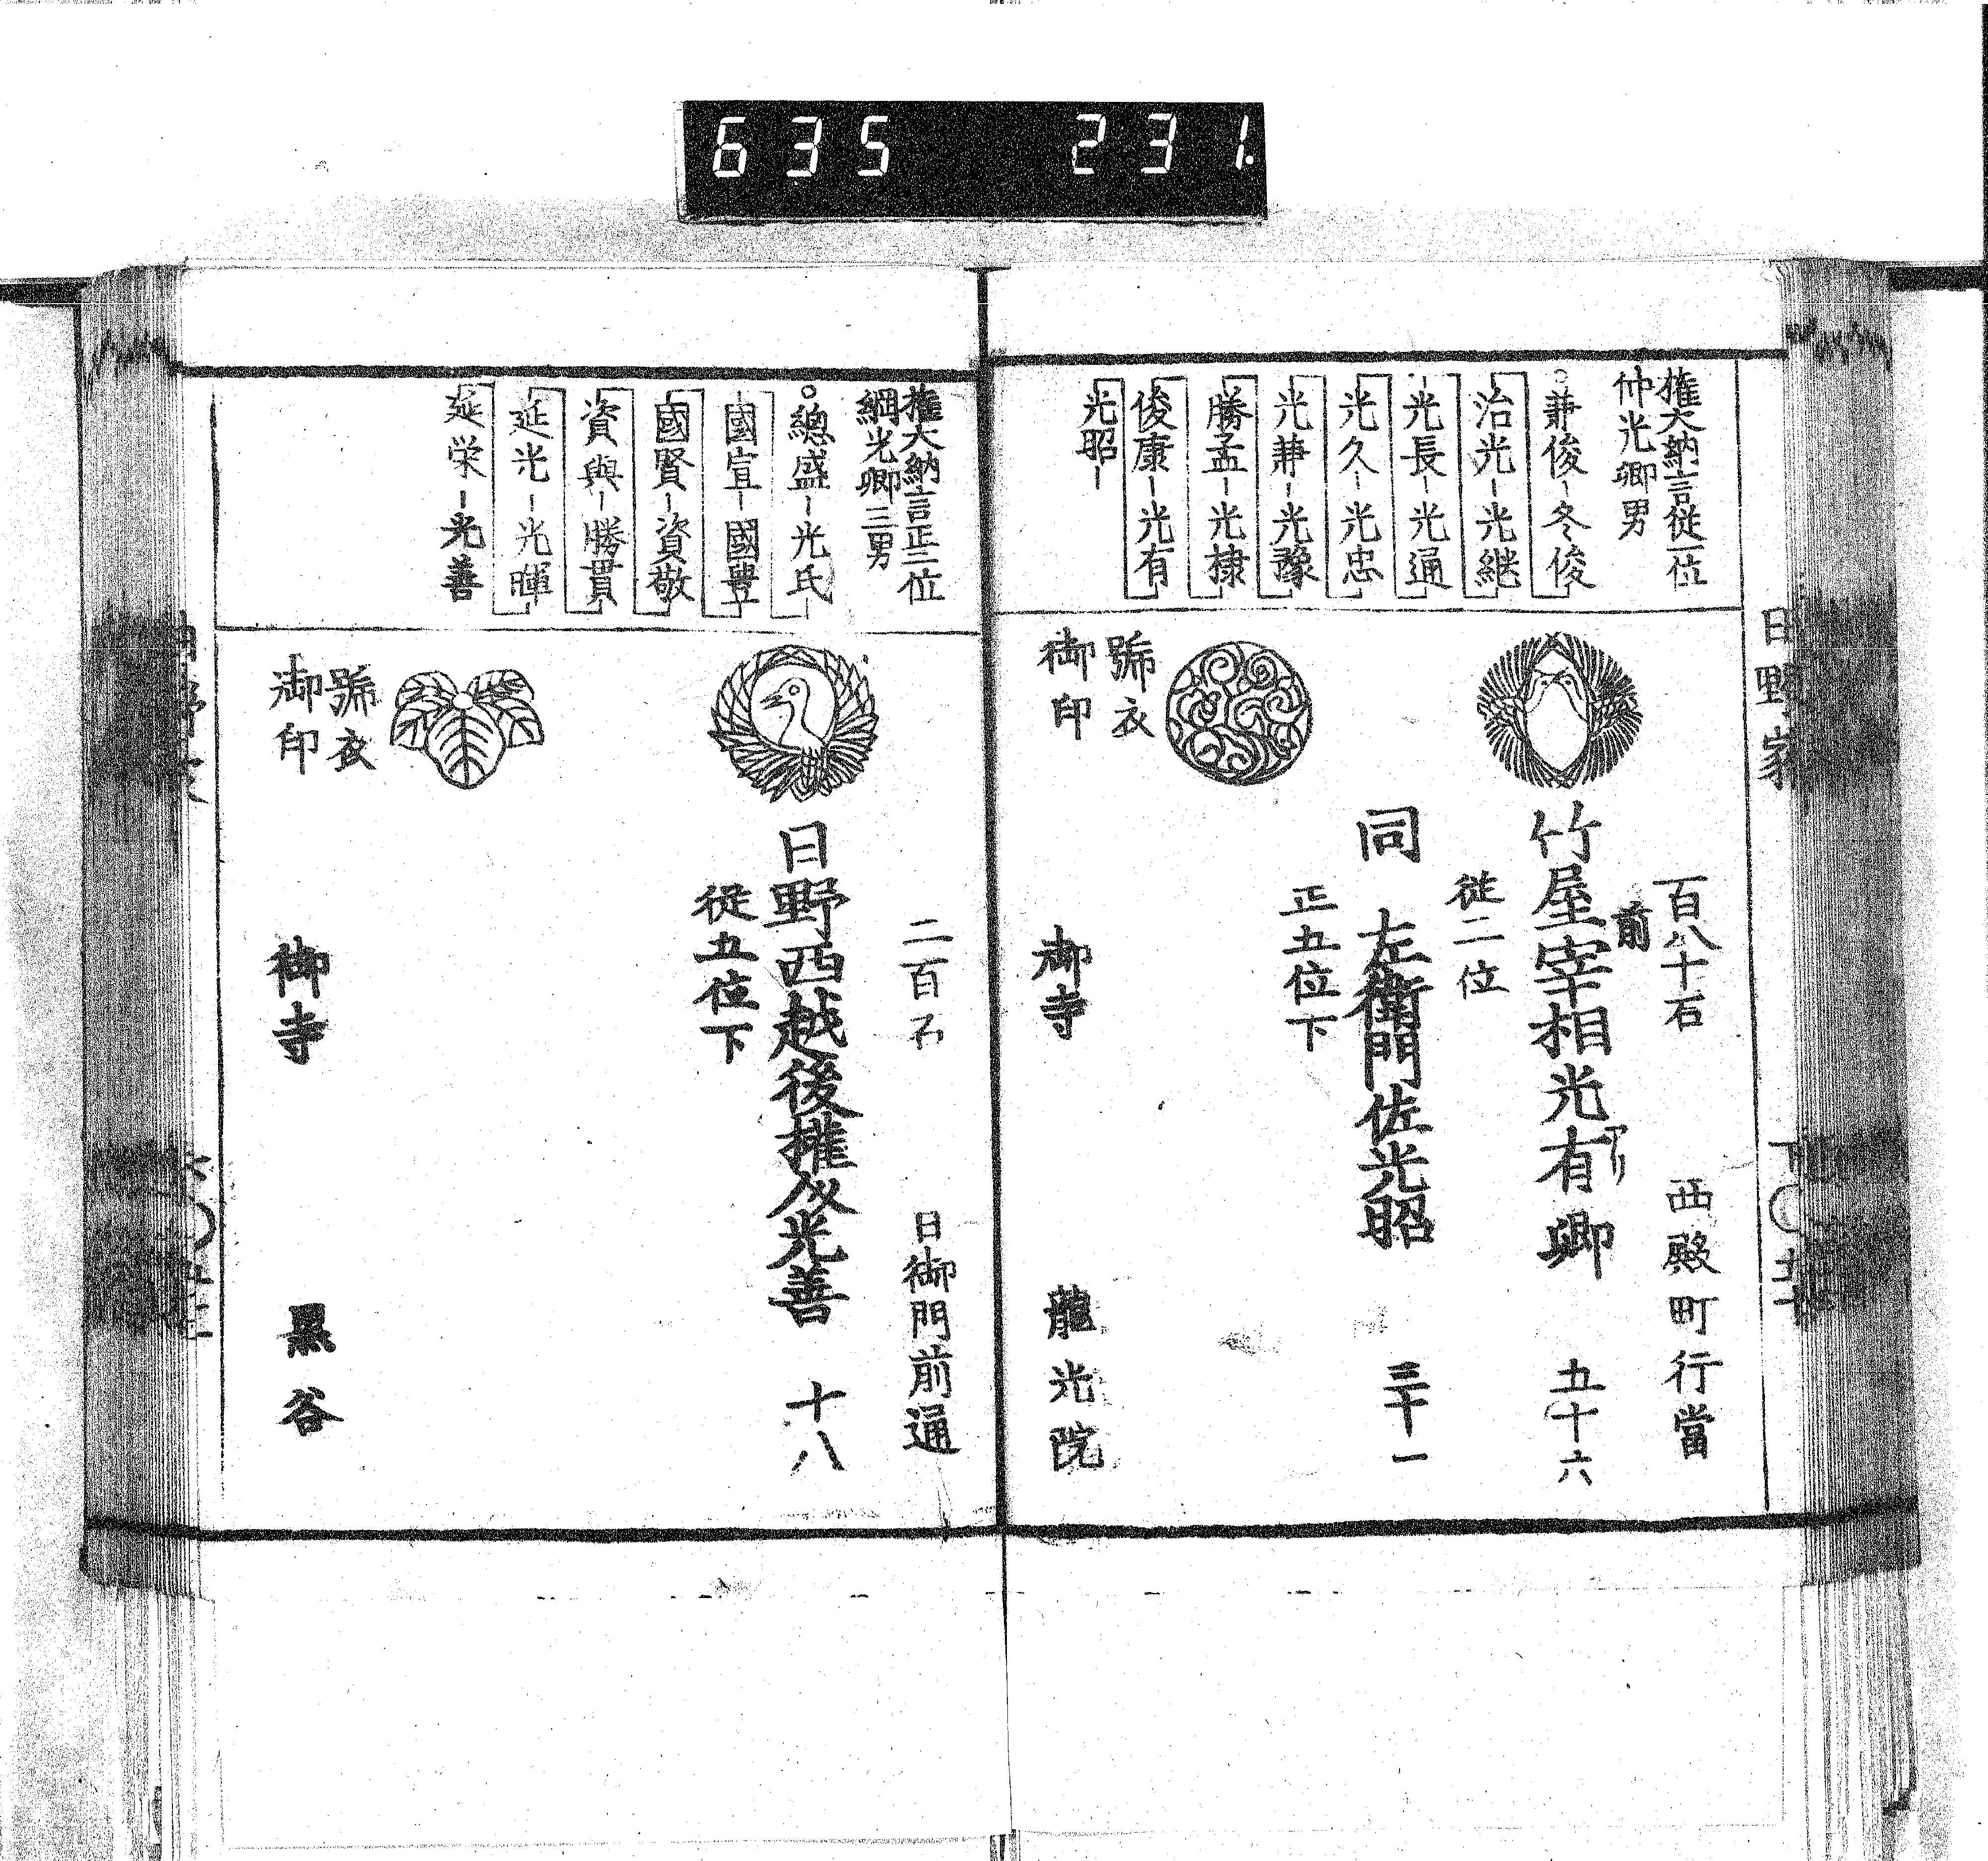 635 231.
日野家
權大納言從一位
仲光卿男
○兼俊-冬俊
治光-光継
光長-光通
光久-光忠
光兼-光豫
勝孟-光棣
俊康-光有
光昭-
百八十石
西殿町行當
前
竹屋宰相光有卿
アリ
五十六
從二位
同 左衛門佐光昭
三十一
正五位下
號衣
御印
御寺
龍光院
權大納言正三位
綱光卿三男
○總盛-光氏
國宣-國豊
國賢-資敬
資與-勝貫
延光-光暉
延栄-光善
二百石
日御門前通
日野西越後權介光善
十八
從五位下
號衣
御印
御寺
黒谷